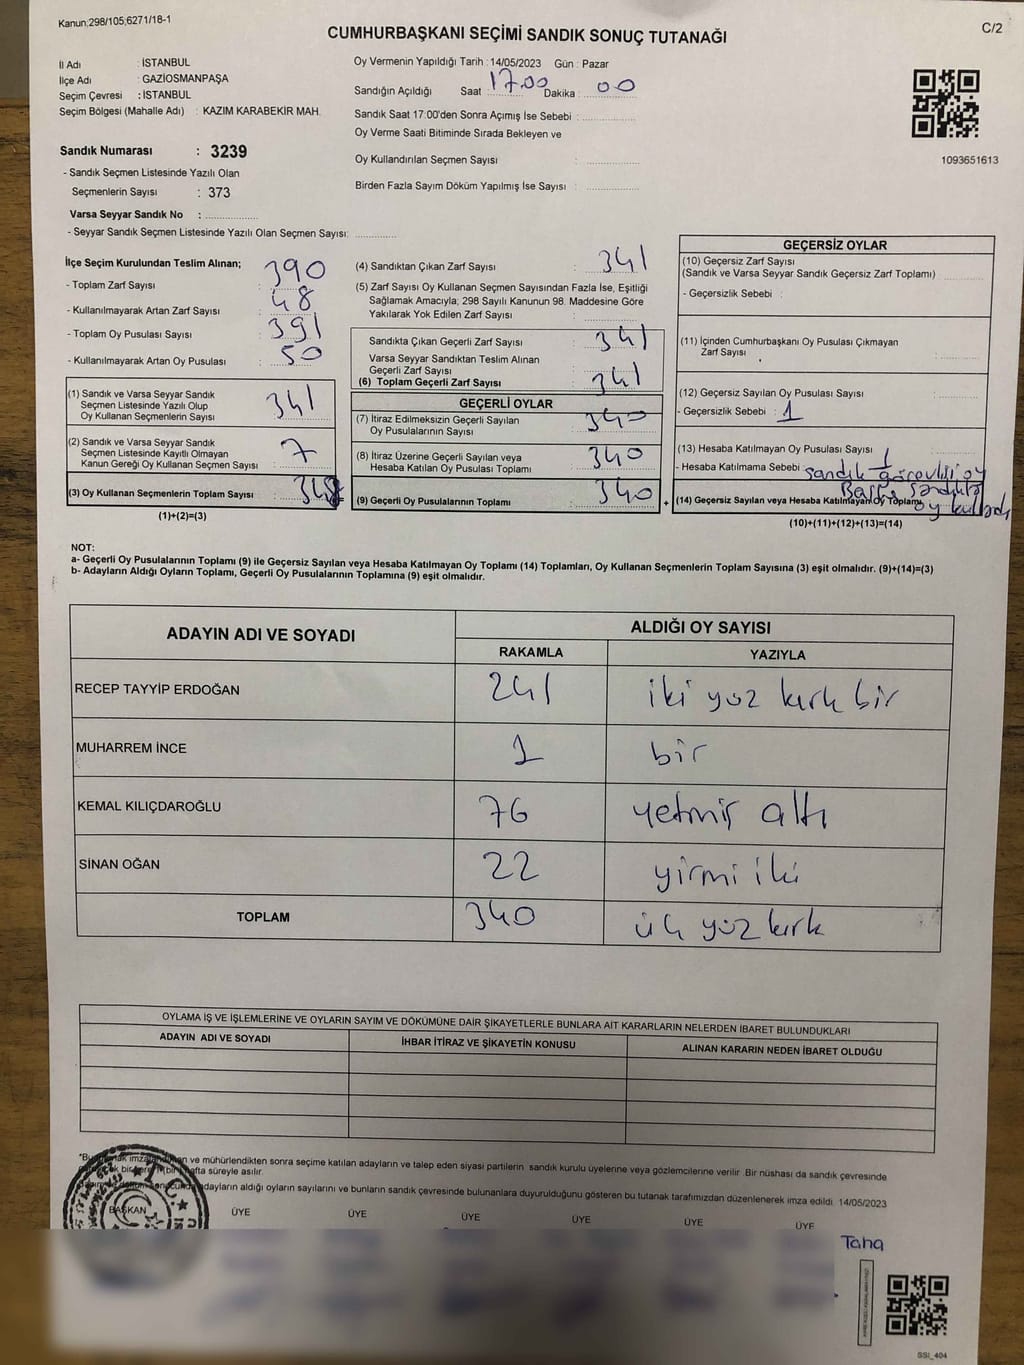 Kanun;298/105,6271/18-1
C/2
CUMHURBAŞKANI SEÇİMİ SANDIK SONUÇ TUTANAĞI
İl Adı : İSTANBUL
İlçe Adı : GAZİOSMANPAŞA
Seçim Çevresi : İSTANBUL
Seçim Bölgesi (Mahalle Adı) : KAZIM KARABEKİR MAH.
Oy Vermenin Yapıldığı Tarih : 14/05/2023 Gün : Pazar
Sandığın Açıldığı Saat : 17.00 Dakika : 00
Sandık Saat 17:00'den Sonra Açımış İse Sebebi :
Oy Verme Saati Bitiminde Sırada Bekleyen ve
Oy Kullandırılan Seçmen Sayısı :
Birden Fazla Sayım Döküm Yapılmış İse Sayısı :
1093651613
Sandık Numarası : 3239
- Sandık Seçmen Listesinde Yazılı Olan
Seçmenlerin Sayısı : 373
Varsa Seyyar Sandık No :
- Seyyar Sandık Seçmen Listesinde Yazılı Olan Seçmen Sayısı:
İlçe Seçim Kurulundan Teslim Alınan;
- Toplam Zarf Sayısı : 390
- Kullanılmayarak Artan Zarf Sayısı : 48
- Toplam Oy Pusulası Sayısı : 391
- Kullanılmayarak Artan Oy Pusulası : 50
(1) Sandık ve Varsa Seyyar Sandık
Seçmen Listesinde Yazılı Olup
Oy Kullanan Seçmenlerin Sayısı : 341
(2) Sandık ve Varsa Seyyar Sandık
Seçmen Listesinde Kayıtlı Olmayan
Kanun Gereği Oy Kullanan Seçmen Sayısı : 7
(3) Oy Kullanan Seçmenlerin Toplam Sayısı : 348
(1)+(2)=(3)
(4) Sandıktan Çıkan Zarf Sayısı : 341
(5) Zarf Sayısı Oy Kullanan Seçmen Sayısından Fazla İse, Eşitliği
Sağlamak Amacıyla; 298 Sayılı Kanunun 98. Maddesine Göre
Yakılarak Yok Edilen Zarf Sayısı :
Sandıkta Çıkan Geçerli Zarf Sayısı : 341
Varsa Seyyar Sandıktan Teslim Alınan
Geçerli Zarf Sayısı :
(6) Toplam Geçerli Zarf Sayısı : 341
GEÇERLİ OYLAR
(7) İtiraz Edilmeksizin Geçerli Sayılan
Oy Pusulalarının Sayısı : 340
(8) İtiraz Üzerine Geçerli Sayılan veya
Hesaba Katılan Oy Pusulası Toplamı : 340
= (9) Geçerli Oy Pusulalarının Toplamı : 340
GEÇERSİZ OYLAR
(10) Geçersiz Zarf Sayısı
(Sandık ve Varsa Seyyar Sandık Geçersiz Zarf Toplamı) :
- Geçersizlik Sebebi :
(11) İçinden Cumhurbaşkanı Oy Pusulası Çıkmayan
Zarf Sayısı :
(12) Geçersiz Sayılan Oy Pusulası Sayısı :
- Geçersizlik Sebebi : 1
(13) Hesaba Katılmayan Oy Pusulası Sayısı : 1
- Hesaba Katılmama Sebebi : sandık görevlisi oy
Başka sandıkta
+ (14) Geçersiz Sayılan veya Hesaba Katılmayan Oy Toplamı
oy kullandı
(10)+(11)+(12)+(13)=(14)
NOT:
a- Geçerli Oy Pusulalarının Toplamı (9) ile Geçersiz Sayılan veya Hesaba Katılmayan Oy Toplamı (14) Toplamları, Oy Kullanan Seçmenlerin Toplam Sayısına (3) eşit olmalıdır. (9)+(14)=(3)
b- Adayların Aldığı Oyların Toplamı, Geçerli Oy Pusulalarının Toplamına (9) eşit olmalıdır.
ADAYIN ADI VE SOYADI
ALDIĞI OY SAYISI
RAKAMLA YAZIYLA
RECEP TAYYİP ERDOĞAN 241 iki yüz kırk bir
MUHARREM İNCE 1 bir
KEMAL KILIÇDAROĞLU 76 yetmiş altı
SİNAN OĞAN 22 yirmi iki
TOPLAM 340 üç yüz kırk
OYLAMA İŞ VE İŞLEMLERİNE VE OYLARIN SAYIM VE DÖKÜMÜNE DAİR ŞİKAYETLERLE BUNLARA AİT KARARLARIN NELERDEN İBARET BULUNDUKLARI
ADAYIN ADI VE SOYADI İHBAR İTİRAZ VE ŞİKAYETİN KONUSU ALINAN KARARIN NEDEN İBARET OLDUĞU
ve mühürlendikten sonra seçime katılan adayların ve talep eden siyasi partilerin sandık kurulu üyelerine veya gözlemcilerine verilir. Bir nüshası da sandık çevresinde
süreyle asılır.
adayların aldığı oyların sayılarını ve bunların sandık çevresinde bulunanlara duyurulduğunu gösteren bu tutanak tarafımızdan düzenlenerek imza edildi. 14/05/2023
BAŞKAN ÜYE ÜYE ÜYE ÜYE ÜYE ÜYE
T.C.
Taha
SSI_404